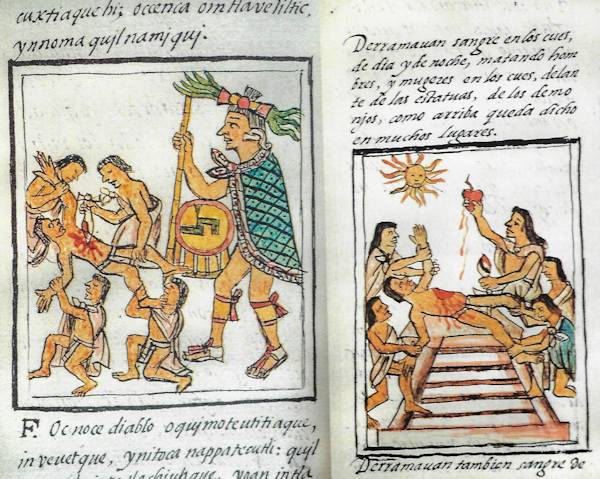 cuxtiaque hi; occenca omtlaveliltic,
ynnoma quilnamiqui.
F. Oc noce diablo oquimoteutitiaque,
in vevetque, ynitoca nappatecutli: quil
yoan intla
Derramauan sangre en los cues,
de dia y de noche, matando hom
bres, y mugeres en los cues, delan
te de las estatuas, de los demo
njos, como arriba queda dicho
en muchos lugares.
Derramauan tambien sangre de